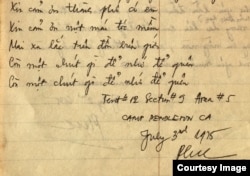 Xin cơm ơn thành phố có em
Xin cơm ơn một mái tóc mềm
Mai xa lắc trên đồn biên giới
Còn một chút gì để nhớ để quên
Còn một chút gì để nhớ để quên
Tent # 12 Section # J Area # 5
CAMP PENDLETON CA
July 3rd 1975
Courtesy Image